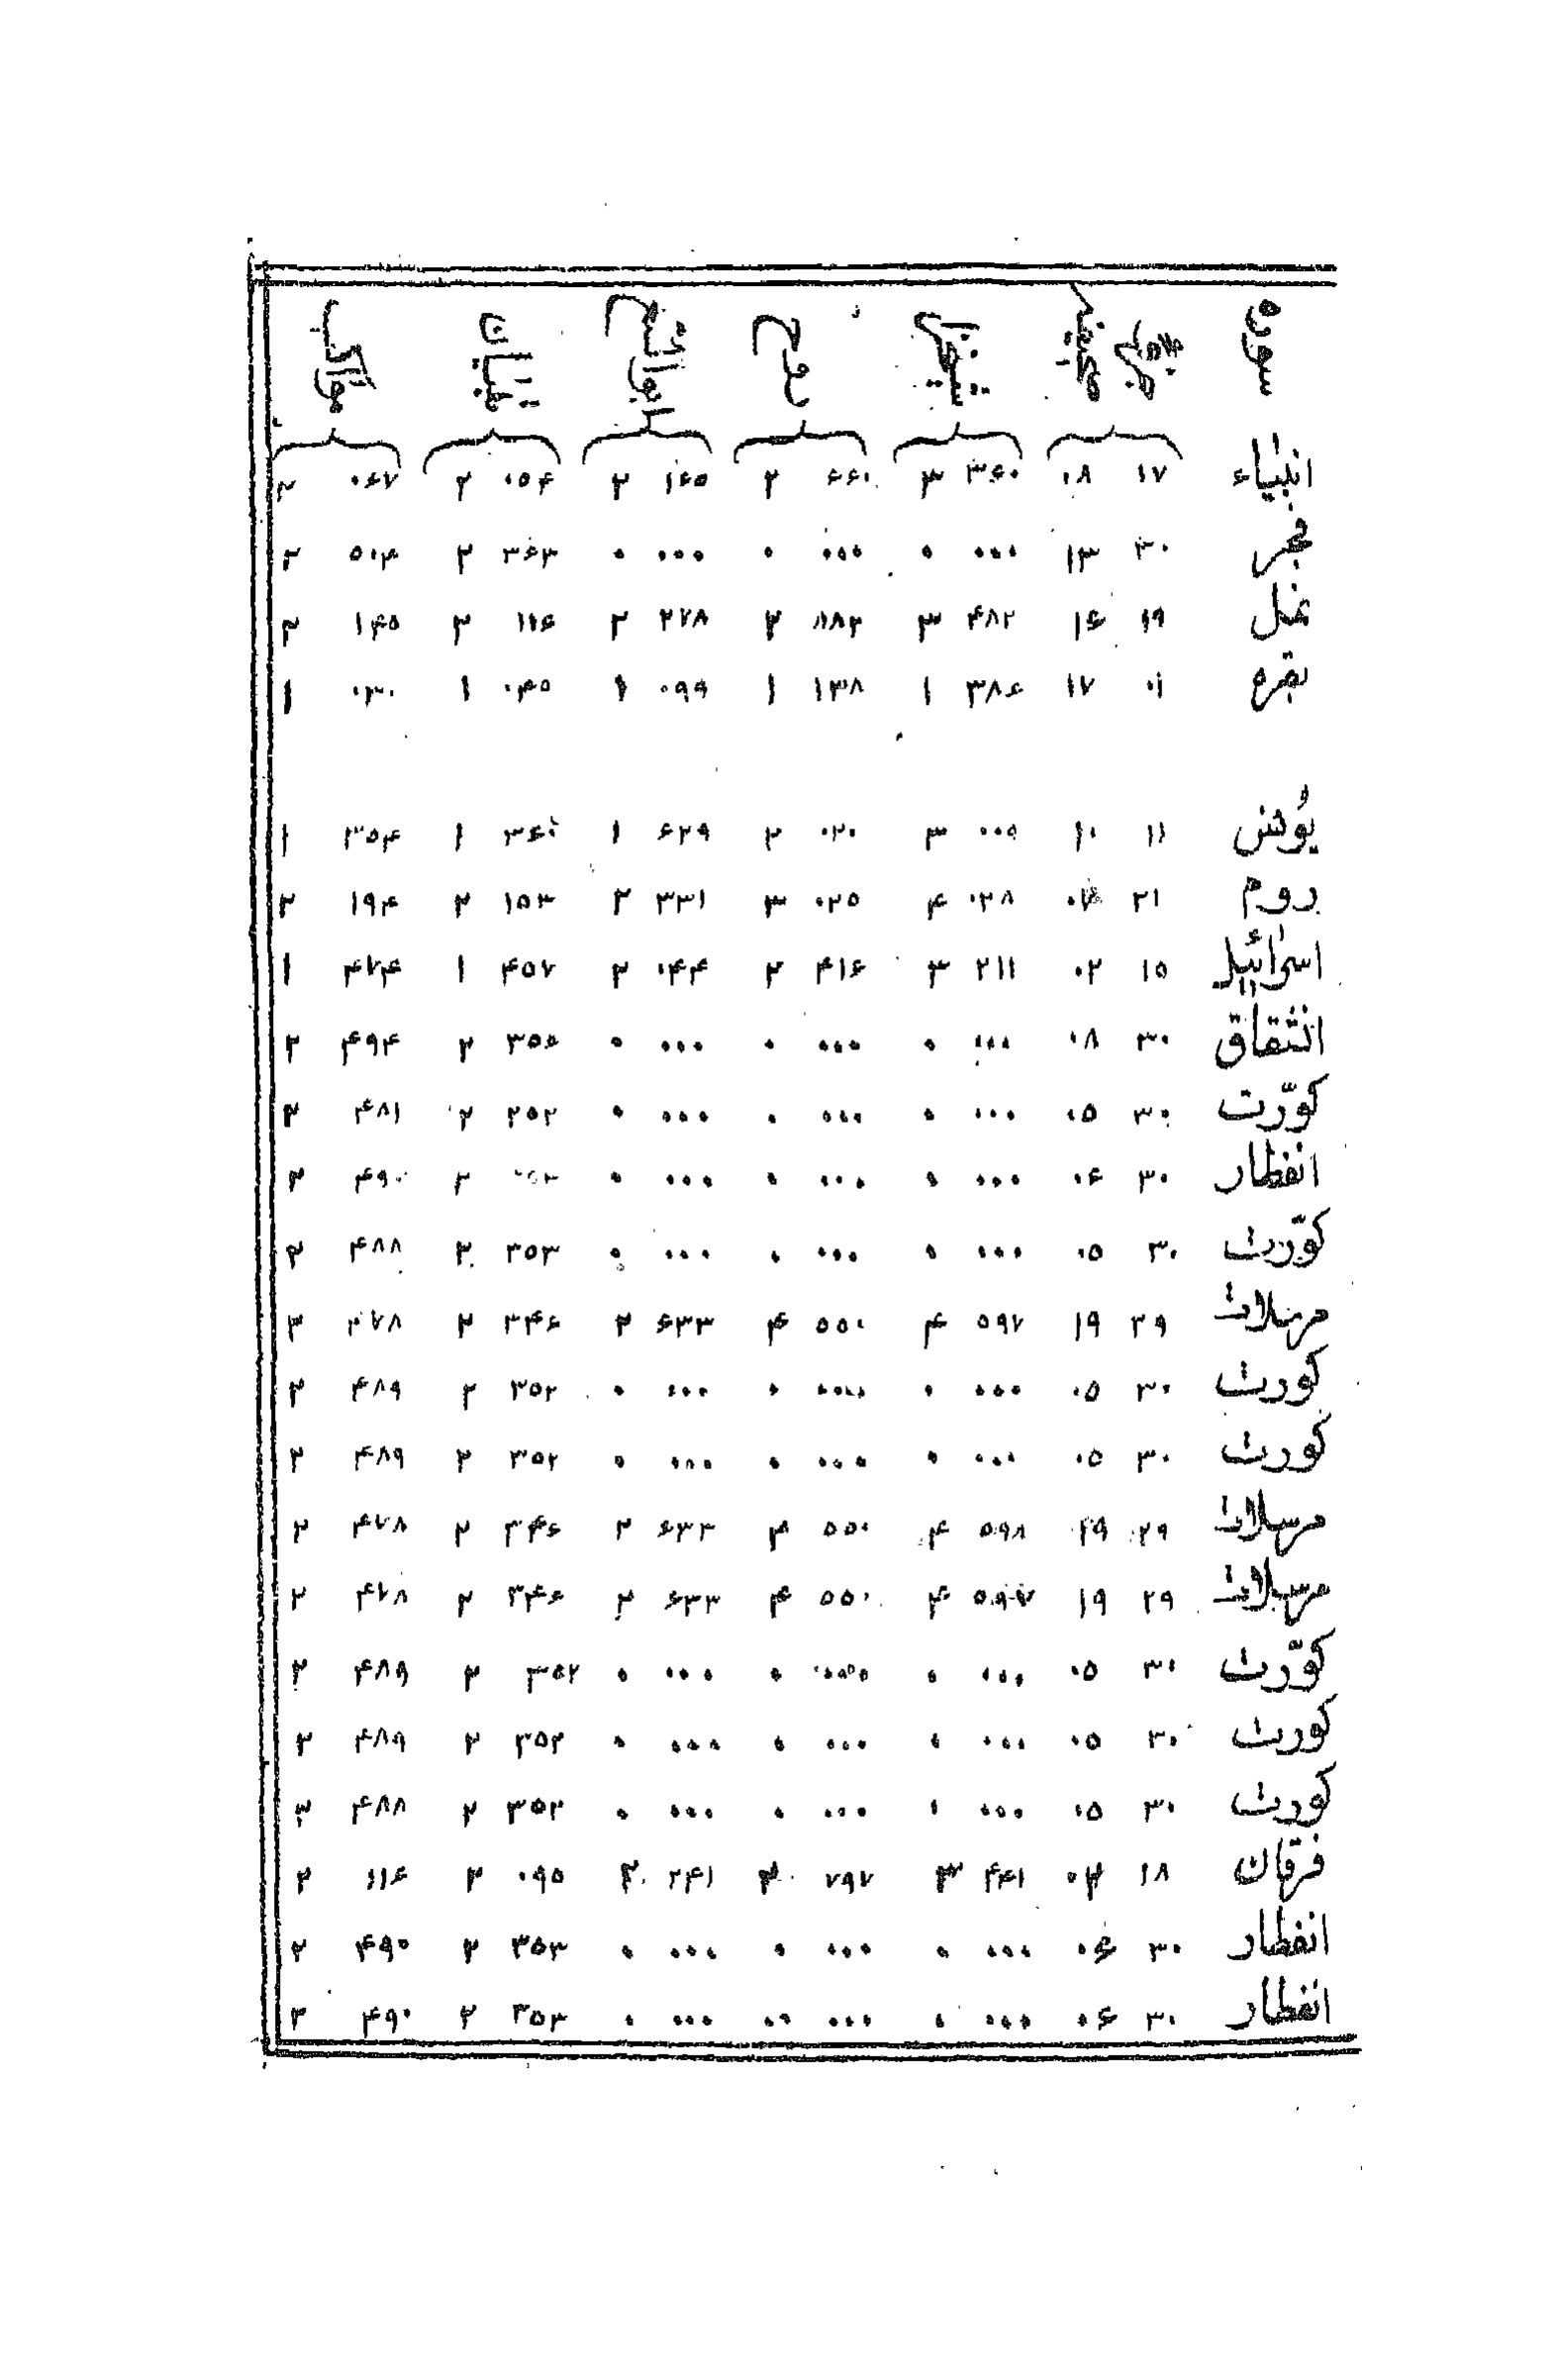 سوره جزء صحیفه شیخی روح ابوالفتوح تبیان مواکب
انبیاء ۱۷ ۰۸ ۳۶۰ ۳ ۶۶۰ ۲ ۱۶۵ ۲ ۰۵۴ ۲ ۰۶۷ ۲
فجر ۳۰ ۱۳ ۰۰۰ ۰ ۰۰۰ ۰ ۰۰۰ ۰ ۳۶۳ ۲ ۵۰۴ ۲
نمل ۱۹ ۱۶ ۴۸۲ ۳ ۸۸۲ ۲ ۲۷۸ ۲ ۱۱۶ ۲ ۱۴۵ ۲
بقره ۰۱ ۱۷ ۳۸۶ ۱ ۱۳۸ ۱ ۰۹۹ ۱ ۰۴۵ ۱ ۰۳۰ ۱
یونس ۱۱ ۱۰ ۰۰۵ ۳ ۰۲۰ ۲ ۶۲۹ ۱ ۳۶۰ ۱ ۳۵۴ ۱
روم ۲۱ ۰۷ ۰۲۸ ۴ ۰۲۵ ۳ ۳۳۱ ۲ ۱۵۳ ۲ ۱۹۴ ۲
اسرائیل ۱۵ ۰۲ ۲۱۱ ۳ ۴۱۶ ۲ ۰۴۴ ۲ ۴۵۷ ۱ ۴۷۴ ۱
انشقاق ۳۰ ۰۸ ۰۰۰ ۰ ۰۰۰ ۰ ۰۰۰ ۰ ۳۵۵ ۲ ۴۹۴ ۲
کوّرت ۳۰ ۰۵ ۰۰۰ ۰ ۰۰۰ ۰ ۰۰۰ ۰ ۲۵۲ ۲ ۴۸۱ ۲
انفطار ۳۰ ۰۶ ۰۰۰ ۰ ۰۰۰ ۰ ۰۰۰ ۰ ۲ ۴۹۰ ۲
کوّرت ۳۰ ۰۵ ۰۰۰ ۰ ۰۰۰ ۰ ۰۰۰ ۰ ۳۵۳ ۲ ۴۸۸ ۲
مرسلات ۲۹ ۱۹ ۵۹۷ ۴ ۵۵۰ ۴ ۶۳۳ ۲ ۳۴۶ ۲ ۴۷۸ ۲
کورت ۳۰ ۰۵ ۰۰۰ ۰ ۰۰۰۰ ۰ ۰۰۰ ۰ ۳۵۲ ۲ ۴۸۹ ۲
کورت ۳۰ ۰۵ ۰۰۰ ۰ ۰۰۰ ۰ ۰۰۰ ۰ ۳۵۲ ۲ ۴۸۹ ۲
مرسلات ۲۹ ۱۹ ۵۹۸ ۴ ۵۵۰ ۴ ۶۳۳ ۲ ۳۴۶ ۲ ۴۷۸ ۲
مرسلات ۲۹ ۱۹ ۵۹۷ ۴ ۵۵۰ ۴ ۶۳۳ ۲ ۳۴۶ ۲ ۴۷۸ ۲
کوّرت ۳۰ ۰۵ ۰۰۰ ۰ ۰۰۰۰ ۰ ۰۰۰ ۰ ۳۵۲ ۲ ۴۸۹ ۲
کورت ۳۰ ۰۵ ۰۰۰ ۰ ۰۰۰ ۰ ۰۰۰ ۰ ۳۵۲ ۲ ۴۸۹ ۲
کورت ۳۰ ۰۵ ۰۰۰ ۰ ۰۰۰ ۰ ۰۰۰ ۰ ۳۵۲ ۲ ۴۸۸ ۲
فرقان ۱۸ ۰۴ ۴۴۱ ۳ ۷۹۷ ۲ ۲۴۱ ۲ ۰۹۵ ۲ ۱۱۶ ۲
انفطار ۳۰ ۰۶ ۰۰۰ ۰ ۰۰۰ ۰ ۰۰۰ ۰ ۳۵۳ ۲ ۴۹۰ ۲
انفطار ۳۰ ۰۶ ۰۰۰ ۰ ۰۰۰ ۰۰ ۰۰۰ ۰ ۳۵۳ ۲ ۴۹۰ ۲